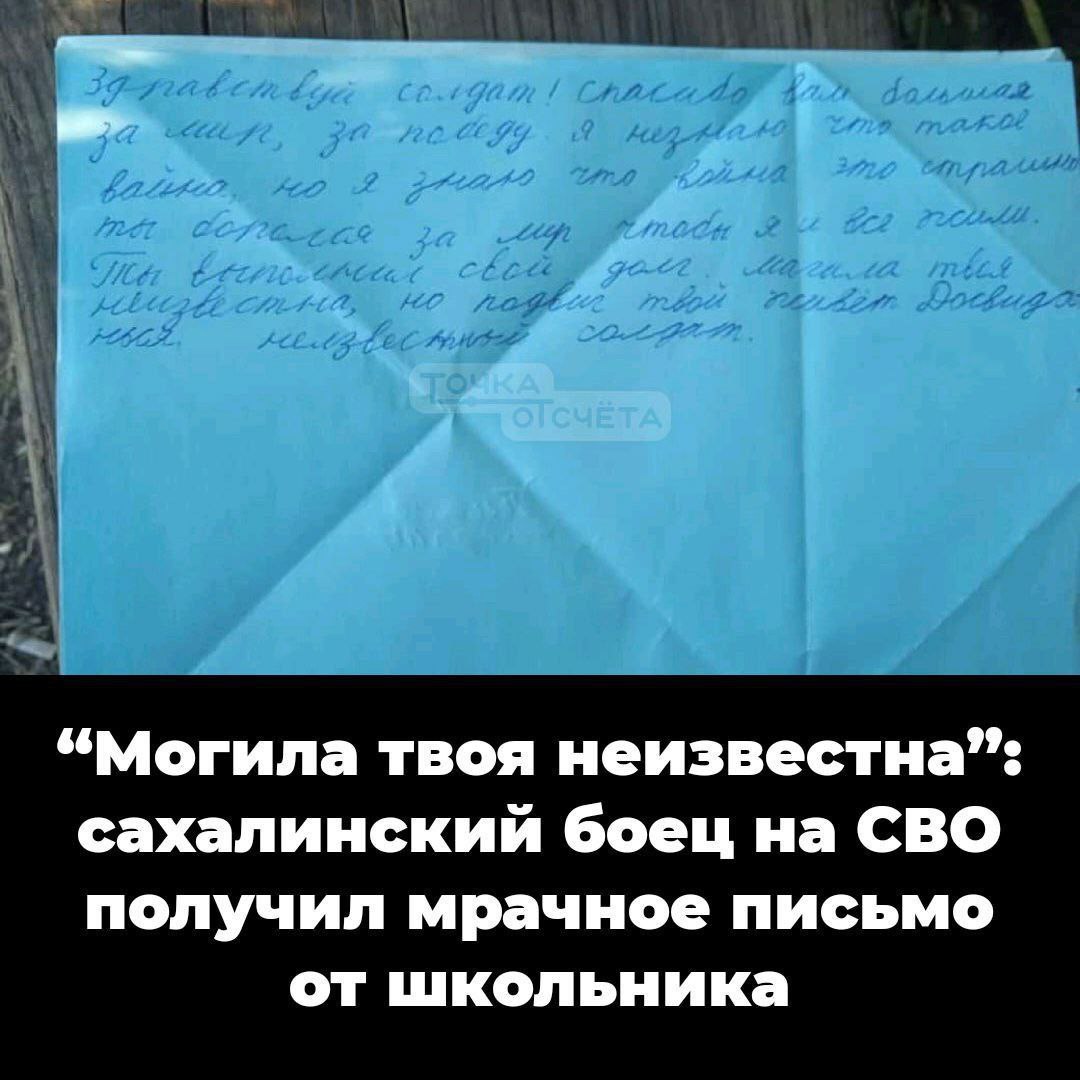 Здравствуй солдат! Спасибо вам большая
за мир, за победу. я незнаю что такое
война, но я знаю что война это страшно
ты боролся за мир чтобы я и все жили.
Ты выполнил свой долг. магила твоя
неизвестна, но подвиг твой живёт Досвида
ныя. неизвестный солдат.
ТОЧКА
ОТСЧЁТА
“Могила твоя неизвестна”:
сахалинский боец на СВО
получил мрачное письмо
от школьника